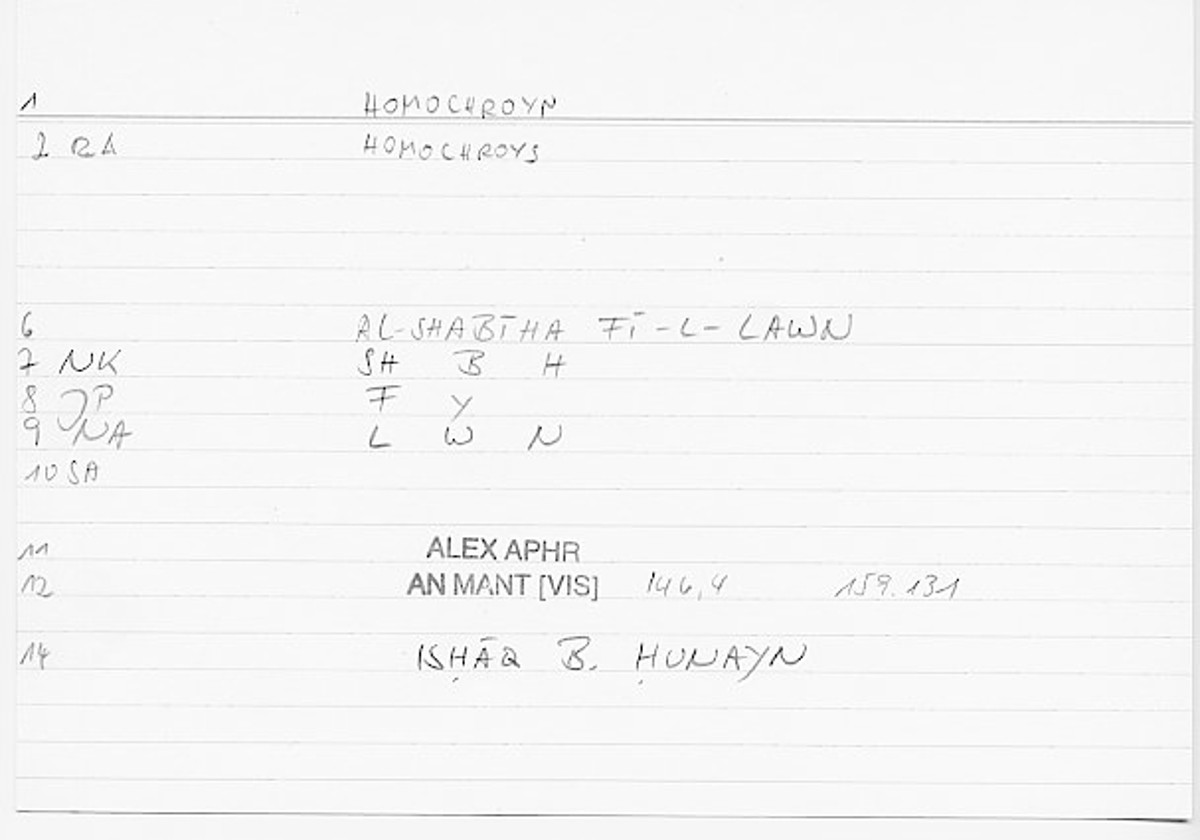 1 HOMOCHROYN
2 RA HOMOCHROYS
6 AL-SHABĪHA FĪ-L-LAWN
7 NK SH B H
8 JP F Y
9 NA L W N
10 SA
11 ALEX APHR
12 AN MANT [VIS] 146,4 159.131
14 ISḤĀQ B. ḤUNAYN